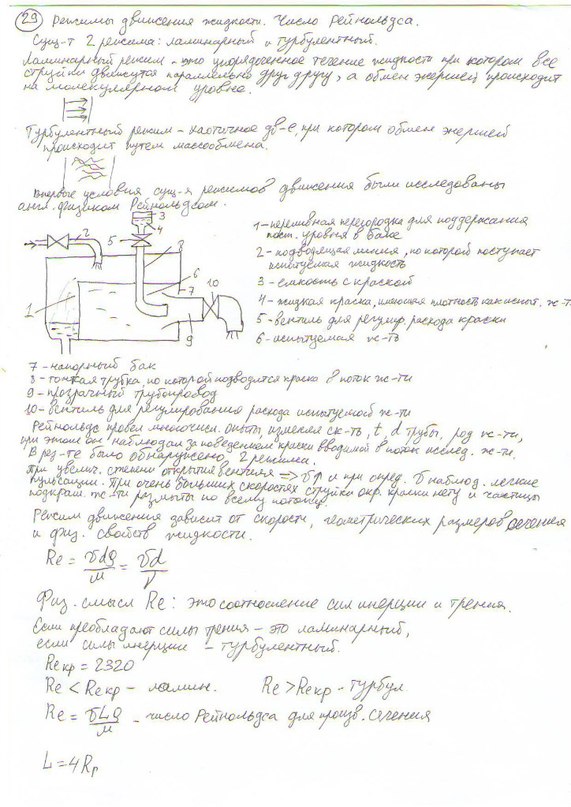 29 Режимы движения жидкости. Число Рейнольдса.
Сущ-т 2 режима: ламинарный и турбулентный.
Ламинарный режим - это упорядоченное течение жидкости при котором все
струйки движутся параллельно друг другу, а обмен энергией происходит
на молекулярном уровне.
Турбулентный режим - хаотичное дв-е, при котором обмен энергией
происходит путем массообмена.
Впервые условия сущ-я режимов движения были исследованы
англ. физиком Рейнольдсом.
1 - переливная перегородка для поддержания
пост. уровня в баке
2 - подводящая линия, по которой поступает
испытуемая жидкость
3 - емкость с краской
4 - жидкая краска, имеющая плотность как испыт. ж-ть
5 - вентиль для регулир. расхода краски
6 - испытуемая ж-ть
2
3
4
5
8
6
7
10
1
9
7 - напорный бак
8 - тонкая трубка, по которой подводится краска в поток ж-ти
9 - прозрачный трубопровод
10 - вентиль для регулирования расхода испытуемой ж-ти
Рейнольдс провел многочисл. опыты, изменяя ск-ть, t, d трубы, род ж-ти,
при этом он наблюдал за поведением краски вводимой в поток исслед. ж-ти.
В рез-те было обнаружено 2 режима.
При увелич. степени открытия вентиля => υ↑ и при опред. υ наблюд. легкие
пульсации. При очень больших скоростях струйки окр. краски нету и частицы
подкраш. ж-ти размыты по всему потоку.
Режим движения зависит от скорости, геометрических размеров сечения
и физ. свойств жидкости.
Re = υdρ/μ = υd/ν
Физ. смысл Re: это соотношение сил инерции и трения.
Если преобладают силы трения - это ламинарный,
если силы инерции - турбулентный.
Reкр = 2320
Re < Reкр - ламин. Re > Reкр - турбул
Re = υLρ/μ - число Рейнольдса для произв. сечения
L = 4Rг